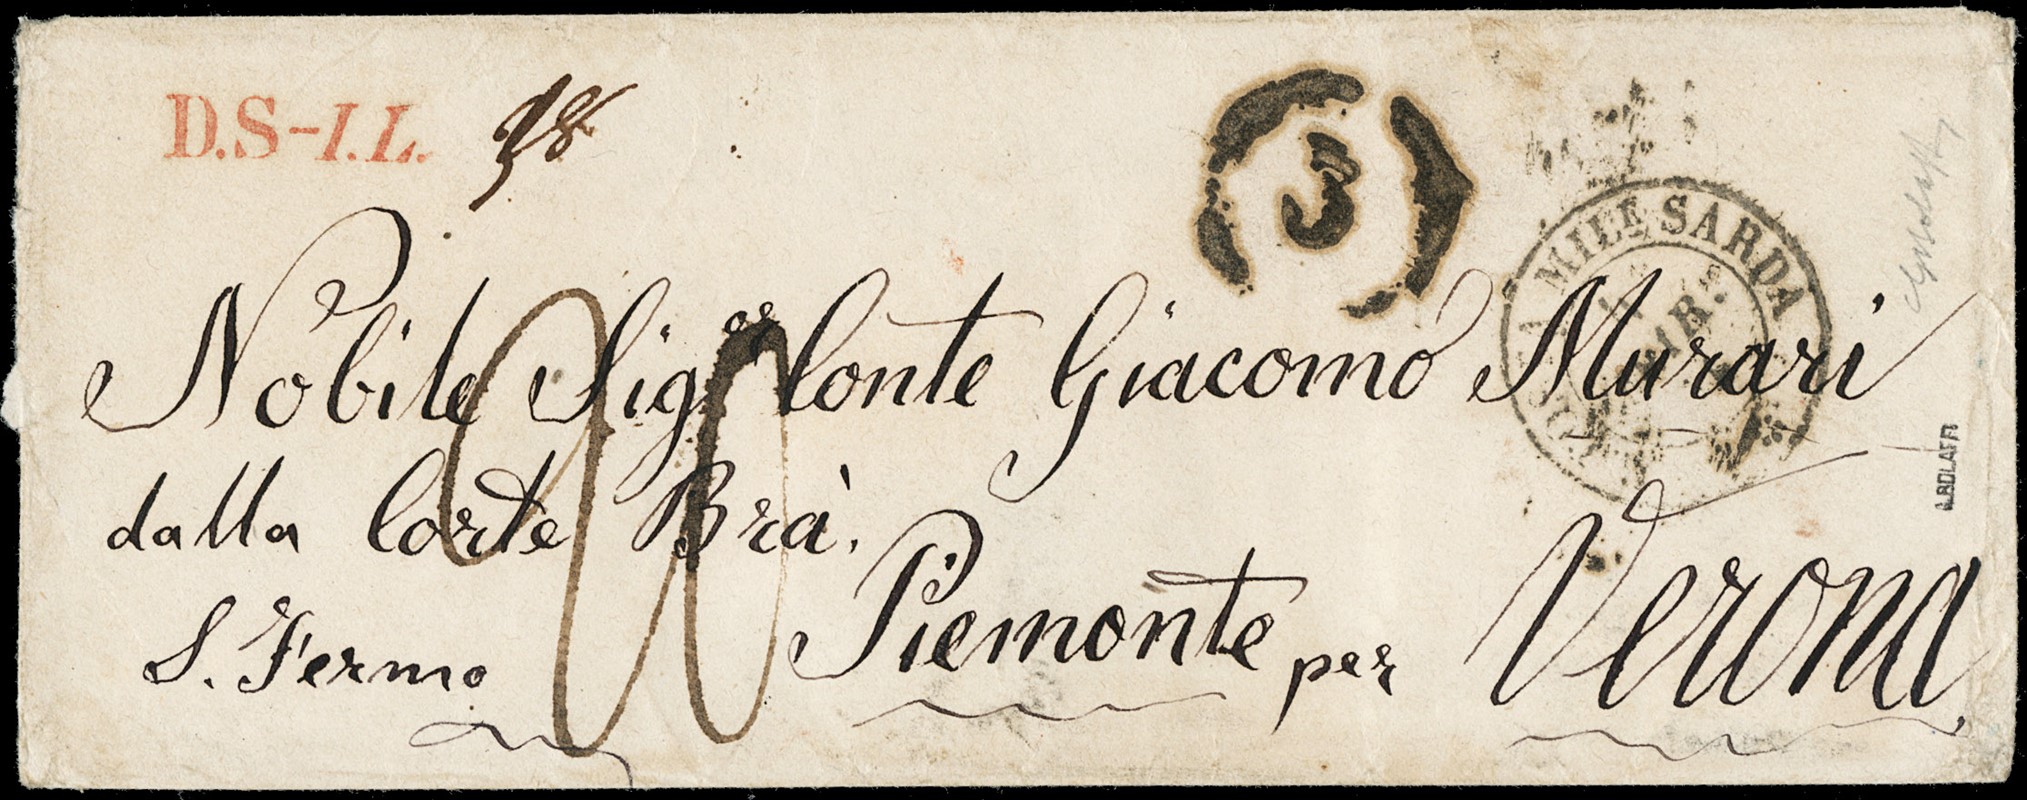 D.S-I.L.
3
MILE SARDA
MAR.
Nobile Sigr Conte Giacomo Murari
dalla Corte Brà.
S. Fermo
Piemonte per Verona
A.BOLAFFI